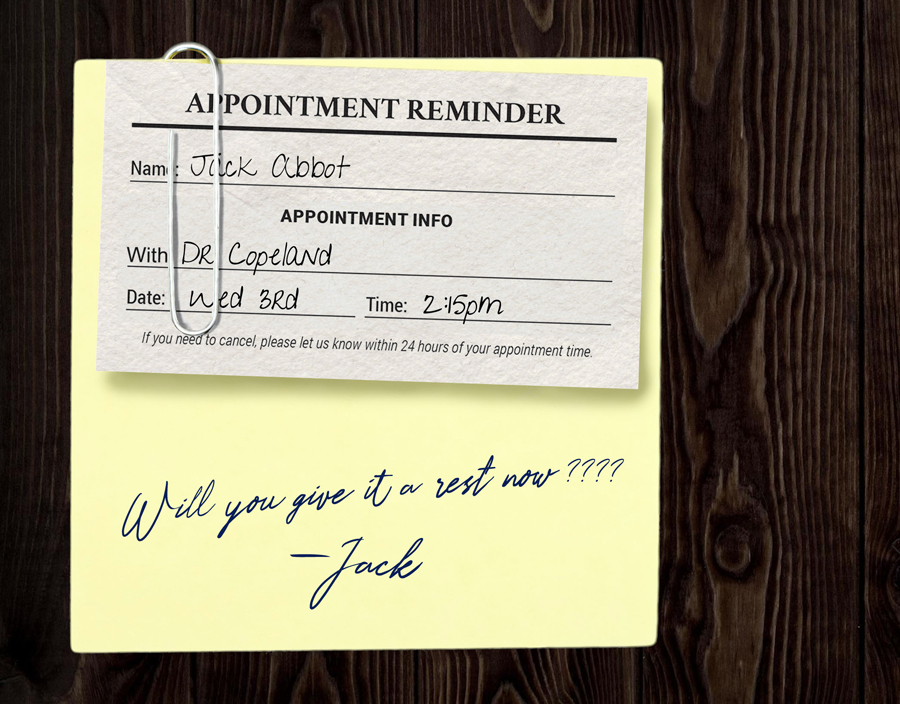 APPOINTMENT REMINDER
Name: Jack Abbot
APPOINTMENT INFO
With DR Copeland
Date: Wed 3Rd Time: 2:15pm
If you need to cancel, please let us know within 24 hours of your appointment time.
Will you give it a rest now ????
—Jack